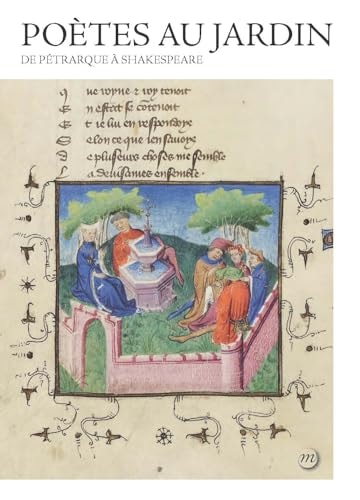 POÈTES AU JARDIN
DE PÉTRARQUE À SHAKESPEARE
Que royne & roy tenoit
En estat se contenoit
Et ie lui en respondoye
Selon ce que ien sauoye
De plusieurs choses me semble
La deuisames ensemble
m